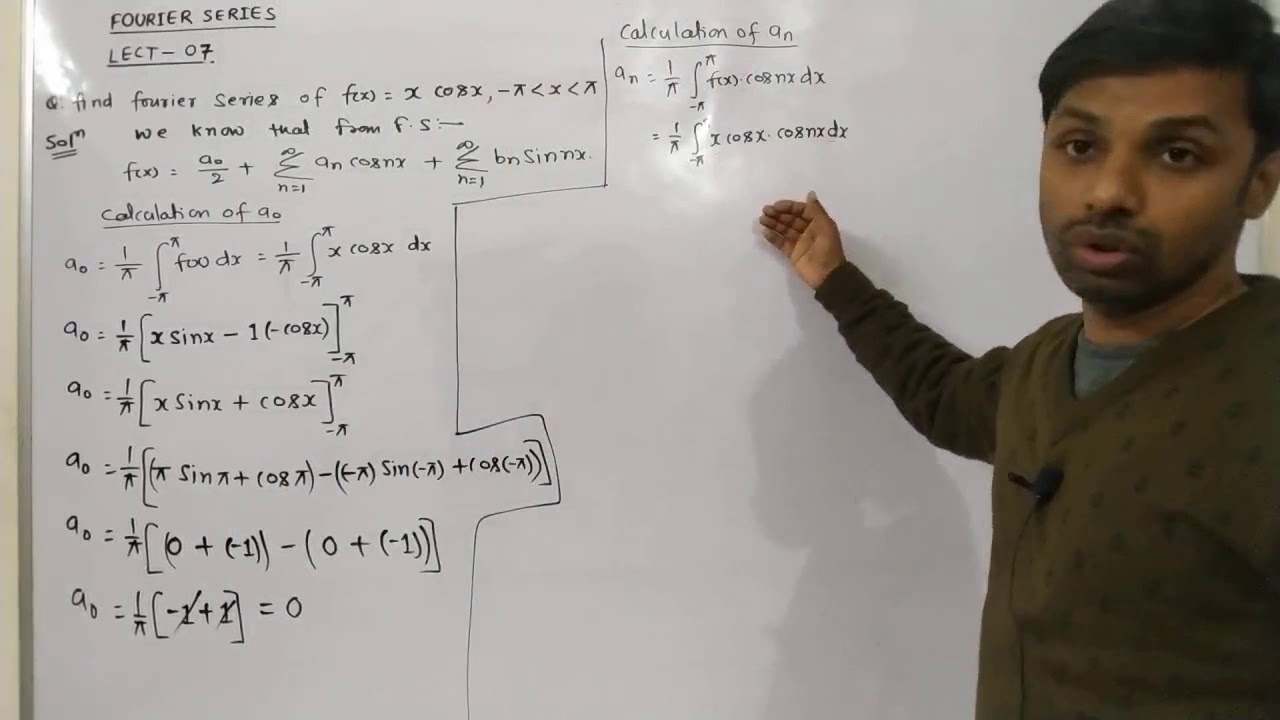 FOURIER SERIES
LECT-07
Q: find fourier series of f(x) = x cosx, -π < x < π
Solⁿ we know that from F.S:-
f(x) = a₀/2 + ∑_{n=1}^{∞} aₙ cosnx + ∑_{n=1}^{∞} bₙ sinnx.
Calculation of a₀
a₀ = 1/π ∫_{-π}^{π} f(x) dx = 1/π ∫_{-π}^{π} x cosx dx
a₀ = 1/π [x sinx - 1(-cosx)]_{-π}^{π}
a₀ = 1/π [x sinx + cosx]_{-π}^{π}
a₀ = 1/π [(π sinπ + cosπ) - ((-π) sin(-π) + cos(-π))]
a₀ = 1/π [(0 + (-1)) - (0 + (-1))]
a₀ = 1/π [-1 + 1] = 0
Calculation of aₙ
aₙ = 1/π ∫_{-π}^{π} f(x)·cosnx dx
= 1/π ∫_{-π}^{π} x cosx·cosnx dx